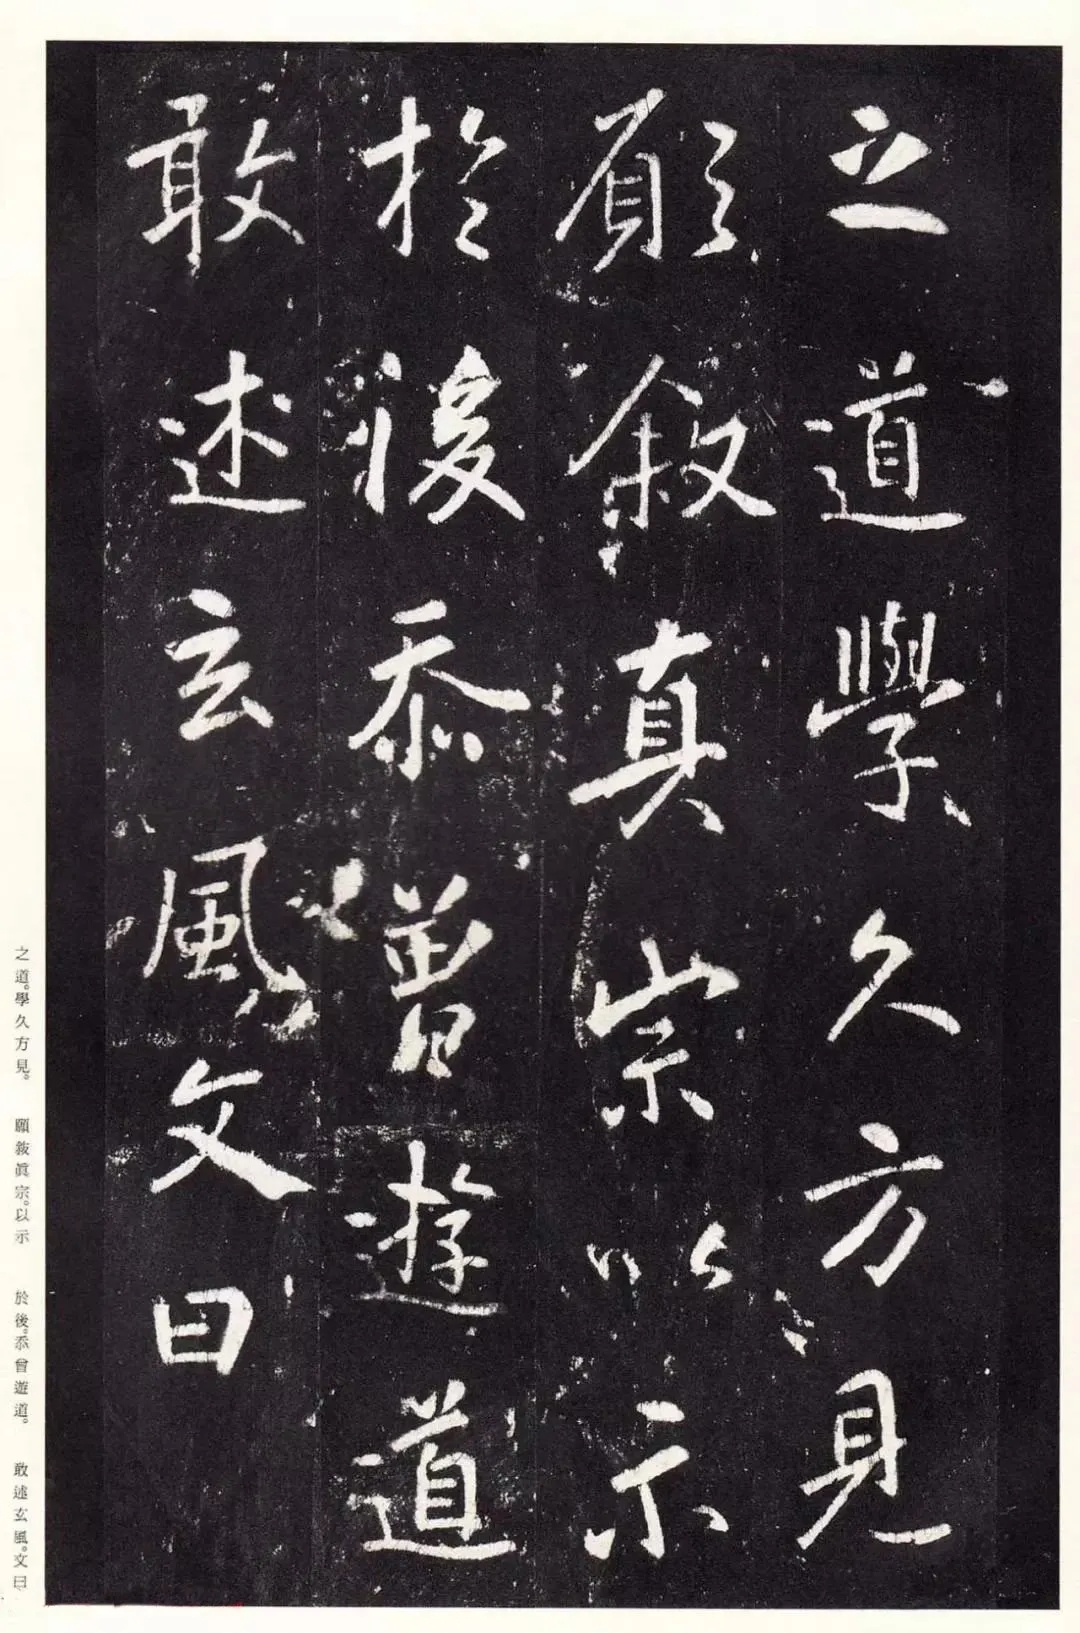 之道學久方見
願敘真宗以示
於後忝曾遊道
敢述玄風文曰
之道。學久方見。
願敘眞宗。以示
於後。忝曾遊道。
敢述玄風。文曰